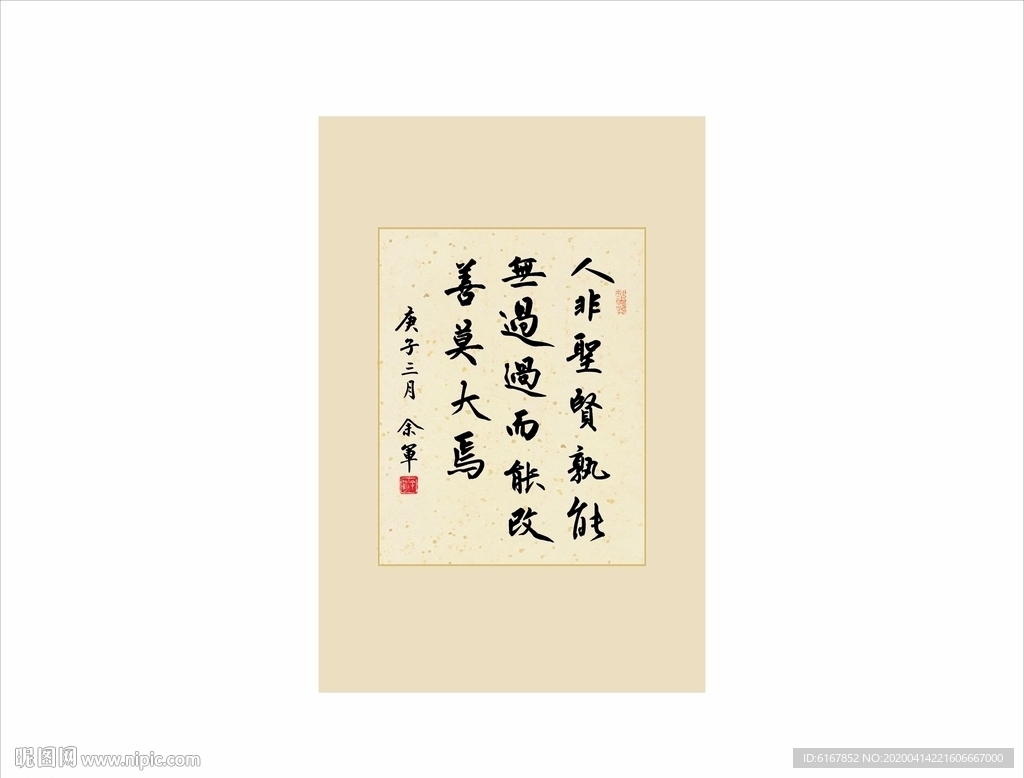 人非聖賢孰能
無過過而能改
善莫大焉
庚子三月 余軍
昵图网 www.nipic.com
ID:6167852 NO:20200414221606667000